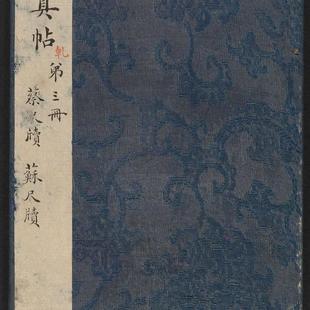 真帖
乾
第三冊
蔡尺牘 蘇尺牘